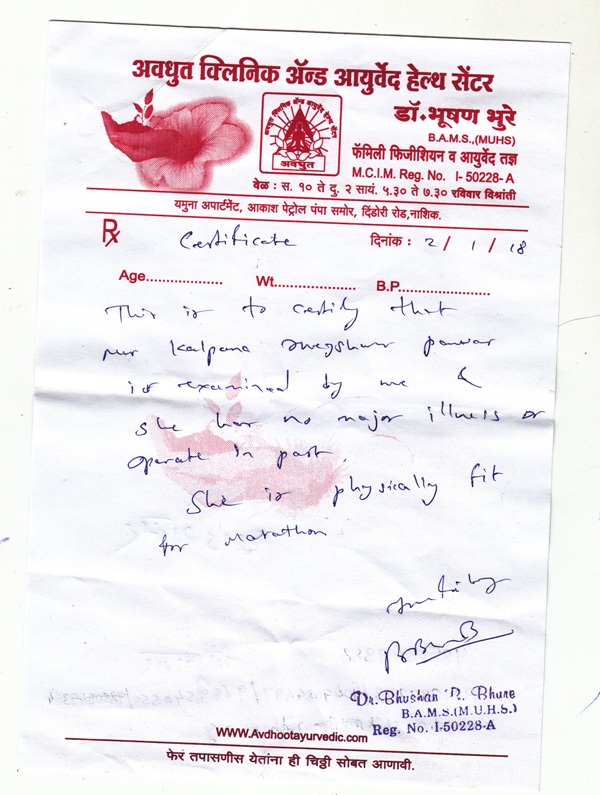 अवधुत क्लिनिक ॲन्ड आयुर्वेद हेल्थ सेंटर
अवधुत
डॉ. भूषण भुरे
B.A.M.S.,(MUHS)
फॅमिली फिजीशियन व आयुर्वेद तज्ञ
M.C.I.M. Reg. No. I-50228-A
वेळ : स. १० ते दु. २ सायं. ५.३० ते ७.३० रविवार विश्रांती
यमुना अपार्टमेंट, आकाश पेट्रोल पंपा समोर, दिंडोरी रोड,नाशिक.
Rx Certificate दिनांक : 2 / 1 / 18
Age................... Wt..................... B.P.......................
This is to certify that
mrs Kalpana pawar
is examined by me &
she has no major illness or
operate in past.
She is physically fit
for Marathon
Dr. Bhushan R. Bhure
B.A.M.S.(M.U.H.S.)
Reg. No. I-50228-A
www.Avdhootayurvedic.com
फेरं तपासणीस येतांना ही चिठ्ठी सोबत आणावी.